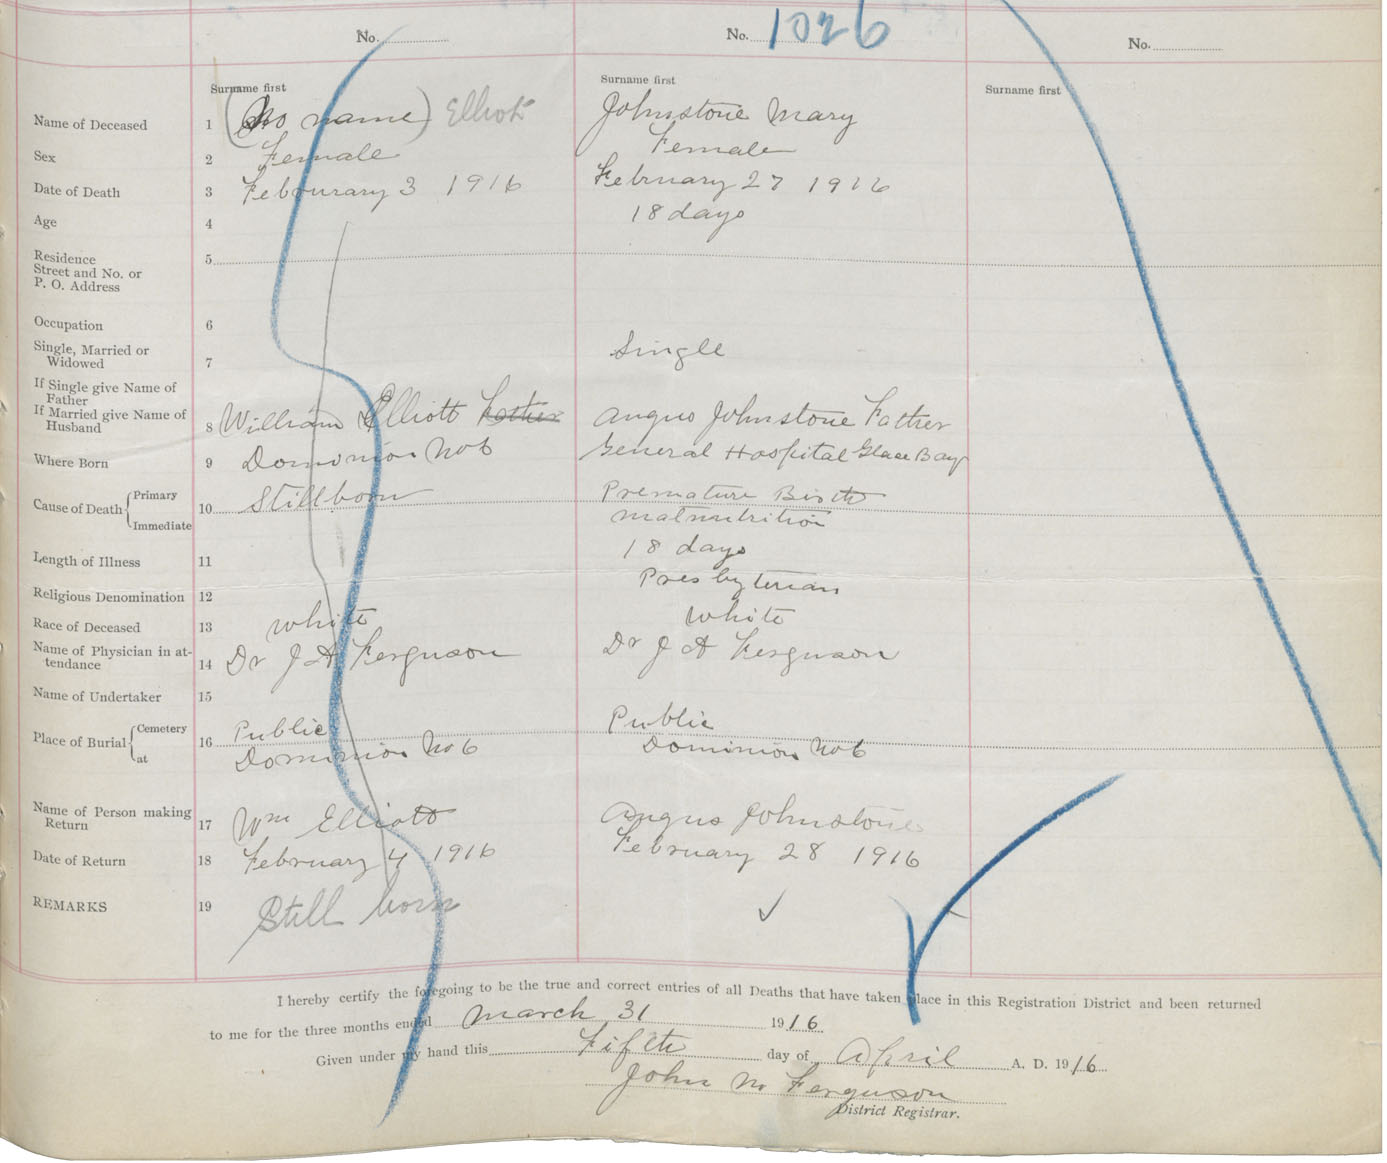 No. No. 1026 No.
Surname first Surname first Surname first
Name of Deceased 1 (No name) Elliott Johnstone Mary
Sex 2 Female Female
Date of Death 3 Febourary 3 1916 February 27 1916
Age 4 18 days
Residence 5
Street and No. or
P. O. Address
Occupation 6
Single, Married or
Widowed 7 Single
If Single give Name of
Father
If Married give Name of
Husband 8 William Elliott Father Angus Johnstone Father
Where Born 9 Dominion No 6 General Hospital Glace Bay
Cause of Death { Primary 10 Stillborn Premature Birth
Immediate malnutrition
Length of Illness 11 18 days
Religious Denomination 12 Presbyterian
Race of Deceased 13 white white
Name of Physician in at-
tendance 14 Dr J A Ferguson Dr J A Ferguson
Name of Undertaker 15
Place of Burial { Cemetery 16 Public Public
at Dominion No 6 Dominion No 6
Name of Person making
Return 17 Wm Elliott Angus Johnstone
Date of Return 18 February 4 1916 February 28 1916
REMARKS 19 Still born ✓
I hereby certify the foregoing to be the true and correct entries of all Deaths that have taken place in this Registration District and been returned
to me for the three months ended March 31 1916
Given under my hand this Fifth day of April A. D. 1916
John M Ferguson
District Registrar.